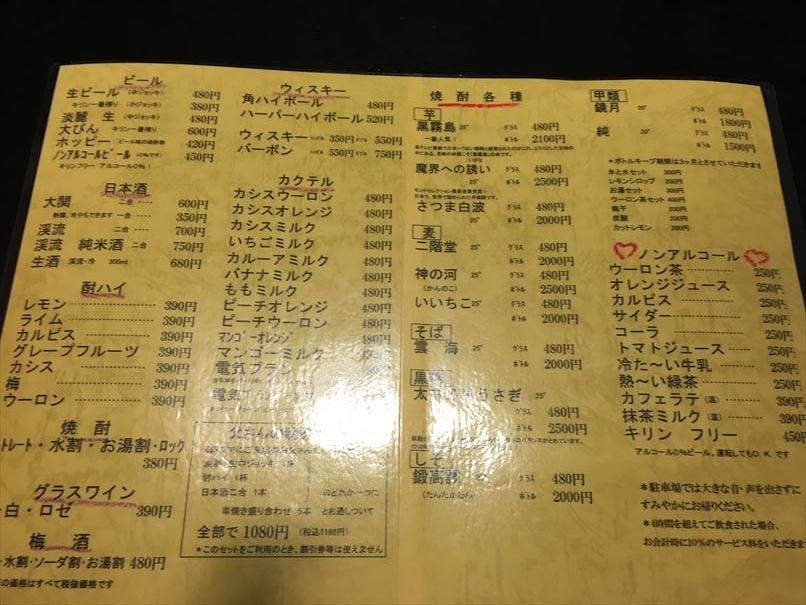 ビール
生ビール (中ジョッキ) 480円
キリン一番搾り (小ジョッキ) 380円
淡麗 生 (中ジョッキ) 480円
大びん キリン一番搾り 600円
ホッピー ビール味の焼酎割 420円
ノンアルコールビール (0%です) 450円
キリンフリー アルコール0%!
日本酒
大関 二合 600円
熱燗、冷やもできます 一合 350円
渓流 二合 700円
渓流 純米酒 二合 750円
生酒 渓流・冷 300ml 680円
酎ハイ
レモン 390円
ライム 390円
カルピス 390円
グレープフルーツ 390円
カシス 390円
梅 390円
ウーロン 390円
焼酎
トレート・水割・お湯割・ロック
380円
グラスワイン
白・ロゼ 390円
梅酒
水割・ソーダ割・お湯割 480円
の価格はすべて税抜価格です
ウィスキー
角ハイボール 480円
ハーバーハイボール 520円
ウィスキー シングル 350円 ダブル 550円
バーボン シングル 550円 ダブル 750円
カクテル
カシスウーロン 480円
カシスオレンジ 480円
カシスミルク 480円
いちごミルク 480円
カルーアミルク 480円
バナナミルク 480円
ももミルク 480円
ピーチオレンジ 480円
ピーチウーロン 480円
マンゴーオレンジ
マンゴーミルク
電気ブラン
電気ブラン
酎ハイ 1杯
日本酒二合 1本 のどれか一つに
串焼き盛り合わせ 5本 とお通しついて
全部で 1080円 (税込1166円)
*このセットをご利用のとき、割引券等は使えません
焼酎各種
芋
黒霧島 25° グラス 480円
一番人気! ボトル 2100円
魔界への誘い グラス 480円
25° ボトル 2500円
さつま白波 グラス 480円
25° ボトル 2000円
麦
二階堂 25° グラス 480円
ボトル 2500円
神の河 25° グラス 480円
(かんのこ) ボトル 2000円
いいちこ 25° グラス 480円
ボトル 2000円
そば
雲海 25° グラス 480円
ボトル 2000円
うさぎ 25°
グラス 480円
ボトル 2500円
しそ
鍛高譚 グラス 480円
(たんたかたん) ボトル 2000円
甲類
鏡月 25° グラス 480円
ボトル 1800円
純 25° グラス 480円
ボトル 1500円
*ボトルキープ期間は3ヶ月とさせていただきます
氷と水セット 300円
レモンシロップ 200円
お湯セット 300円
ウーロン茶セット 400円
梅干 200円
炭酸 200円
カットレモン 200円
ノンアルコール
ウーロン茶 250円
オレンジジュース 250円
カルピス 250円
サイダー 250円
コーラ 250円
トマトジュース 250円
冷た~い牛乳 250円
熱~い緑茶 250円
カフェラテ (温) 390円
抹茶ミルク (温) 390円
キリン フリー 450円
アルコール0%ビール。運転してもO.K.です
*駐車場では大きな音・声を出さずに
すみやかにお帰りください。
*4時間を超えてご飲食された場合、
お会計時に10%のサービス料をいただきます